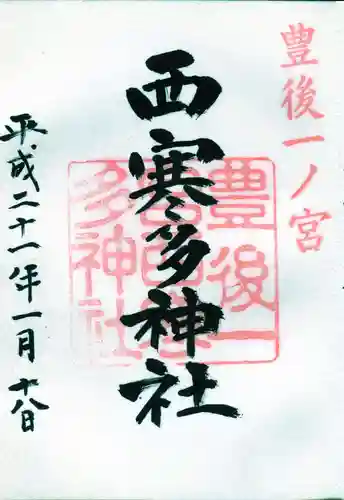 豊後一ノ宮
西寒多神社
平成二十一年一月十八日
豊後一
宮西寒
多神社